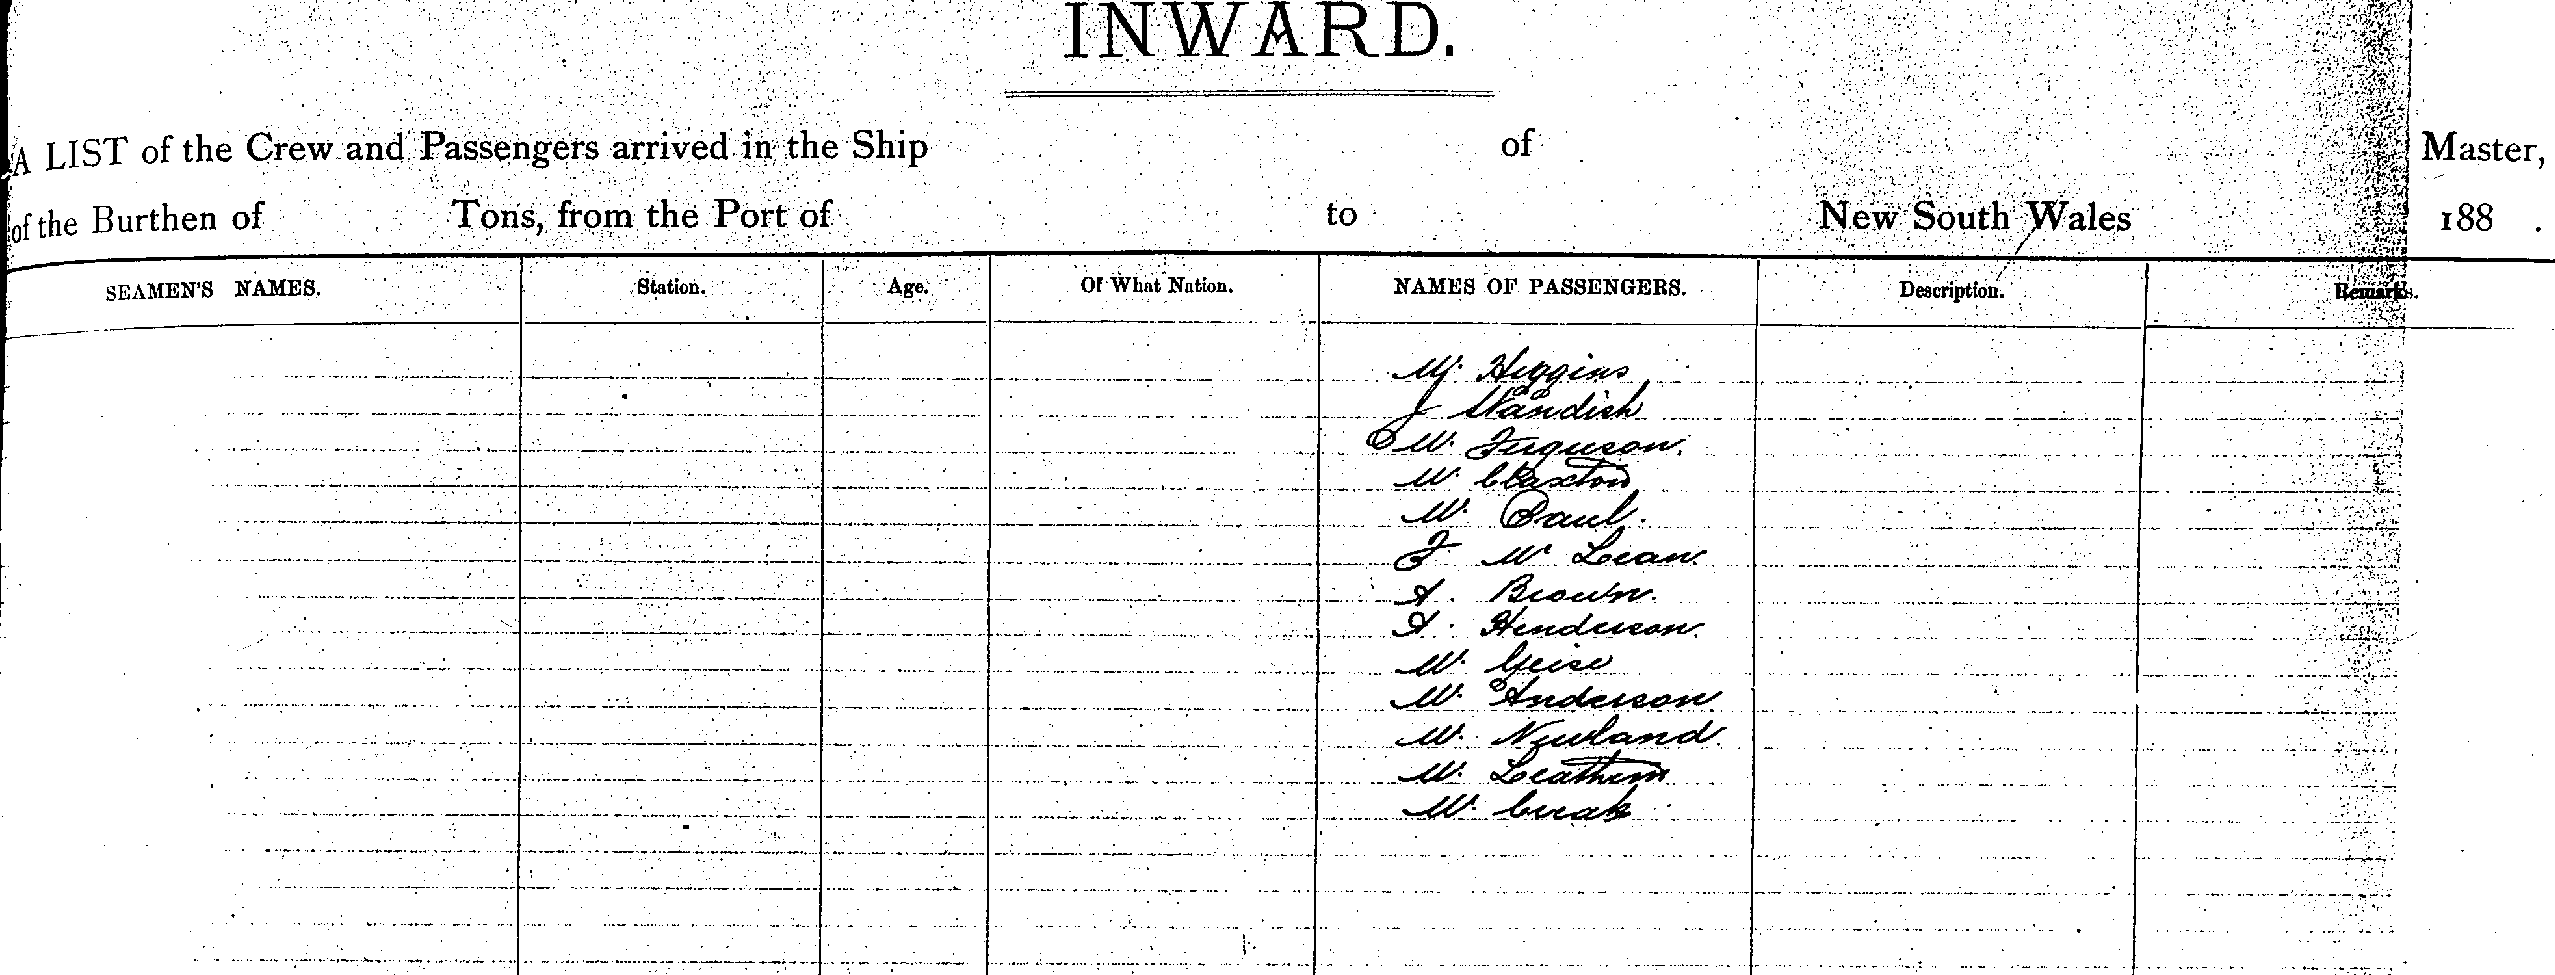 INWARD.
A LIST of the Crew and Passengers arrived in the Ship of Master,
of the Burthen of Tons, from the Port of to New South Wales 188 .
SEAMEN'S NAMES. Station. Age. Of What Nation. NAMES OF PASSENGERS. Description. Remarks.
Higgins
J Standish
W. Ferguson.
W. Claxton
W. Paul.
J. Mc Lean.
A. Brown.
A. Henderson.
W. Geise
W. Anderson.
W. Newland.
W. Leathem
W.